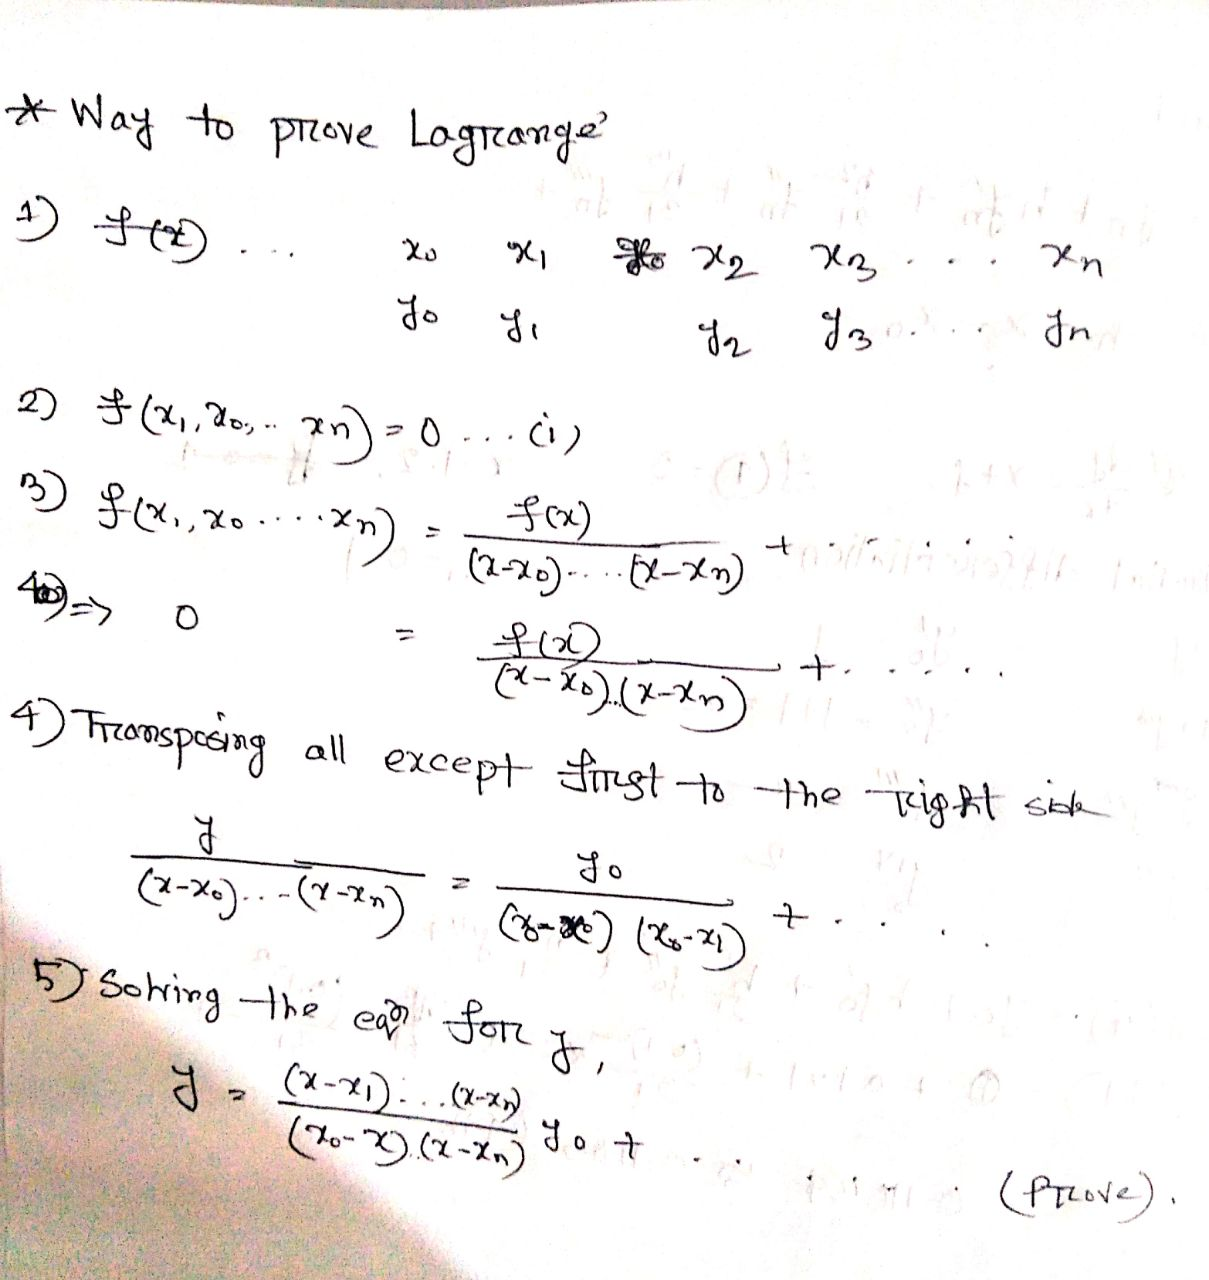 * Way to prove Lagrange
1) f(x) ... x₀ x₁ x₂ x₃ ... xₙ
y₀ y₁ y₂ y₃ ... yₙ
2) f(x,, x₀,.. xₙ) = 0 ... (i)
3) f(x,, x₀ ....xₙ) = f(x) / (x-x₀)....(x-xₙ) + ......
=> 0 = f(x) / (x-x₀)..(x-xₙ) + .....
4) Transposing all except first to the right side
y / (x-x₀)...-(x-xₙ) = y₀ / (x₀-x₁) + ....
5) Solving the eqn for y,
y = (x-x₁)...(x-xₙ) / (x₀-x).(x-xₙ) y₀ + ....... (Prove).